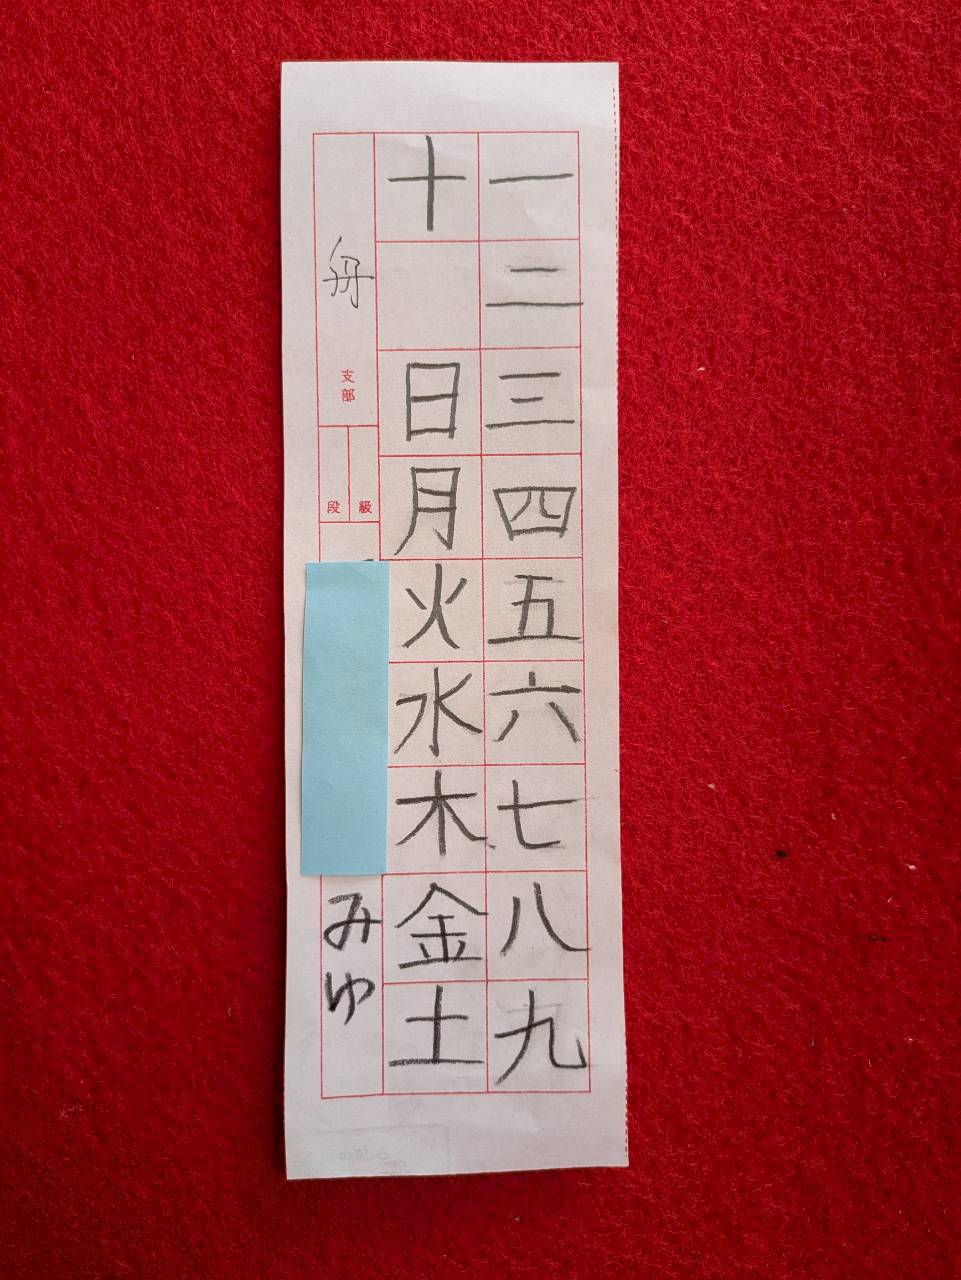 一二三四五六七八九
十 日月火水木金土
舟 支部
段 級
みゆ